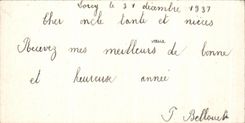 Sorcy le 31 décembre 1937
Cher oncle tante et nièces
Recevez mes meilleurs vœux de bonne
et heureuse année